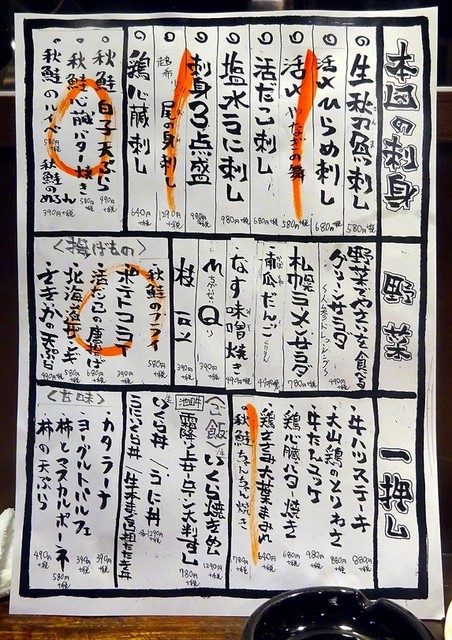 本日の味自
生秋刀魚刺し
活〆ひらめ刺し 580円+税
活〆やなぎの舞 580円+税
活だこ刺し 680円+税
塩水うに刺し 980円+税
刺身3点盛 980円+税
尾の身刺し
鶏心臓刺し 640円+税
・秋鮭白子天ぷら 490円+税
・秋鮭心臓バター焼き 580円+税
・秋鮭のルイベ
・秋鮭のめふん 390円+税
野菜
野菜でやさいを食べる
グリーンサラダ
札幌ラーメンサラダ 780円+税
南瓜だんご
なす味噌焼き
もQ 390円+税
枝豆 390円+税
<揚げもの>
秋鮭のフライ 580円+税
ポテトコロッケ
活つぶの唐揚げ 680円+税
北海道ザンギ 580円+税
一押し
・牛ハツステーキ 880円+税
・大山鶏のとりわさ 880円+税
・牛たんユッケ 980円+税
・鶏心臓バター焼き 680円+税
・鶏ささみ大葉まみれ 640円+税
・秋鮭ちゃんちゃん焼き 780円+税
<ご飯>
いくら焼きめし 1290円+税
池田牛
霜降上牛タン大判すし 780円+税
いくら丼/うに丼
うにいくら丼/生本まぐろ担たた丼
<甘味>
カタラーナ 390円+税
ヨーグルトパルフェ 390円+税
柿とマスカルポーネ 580円+税
柿の天ぷら 490円+税